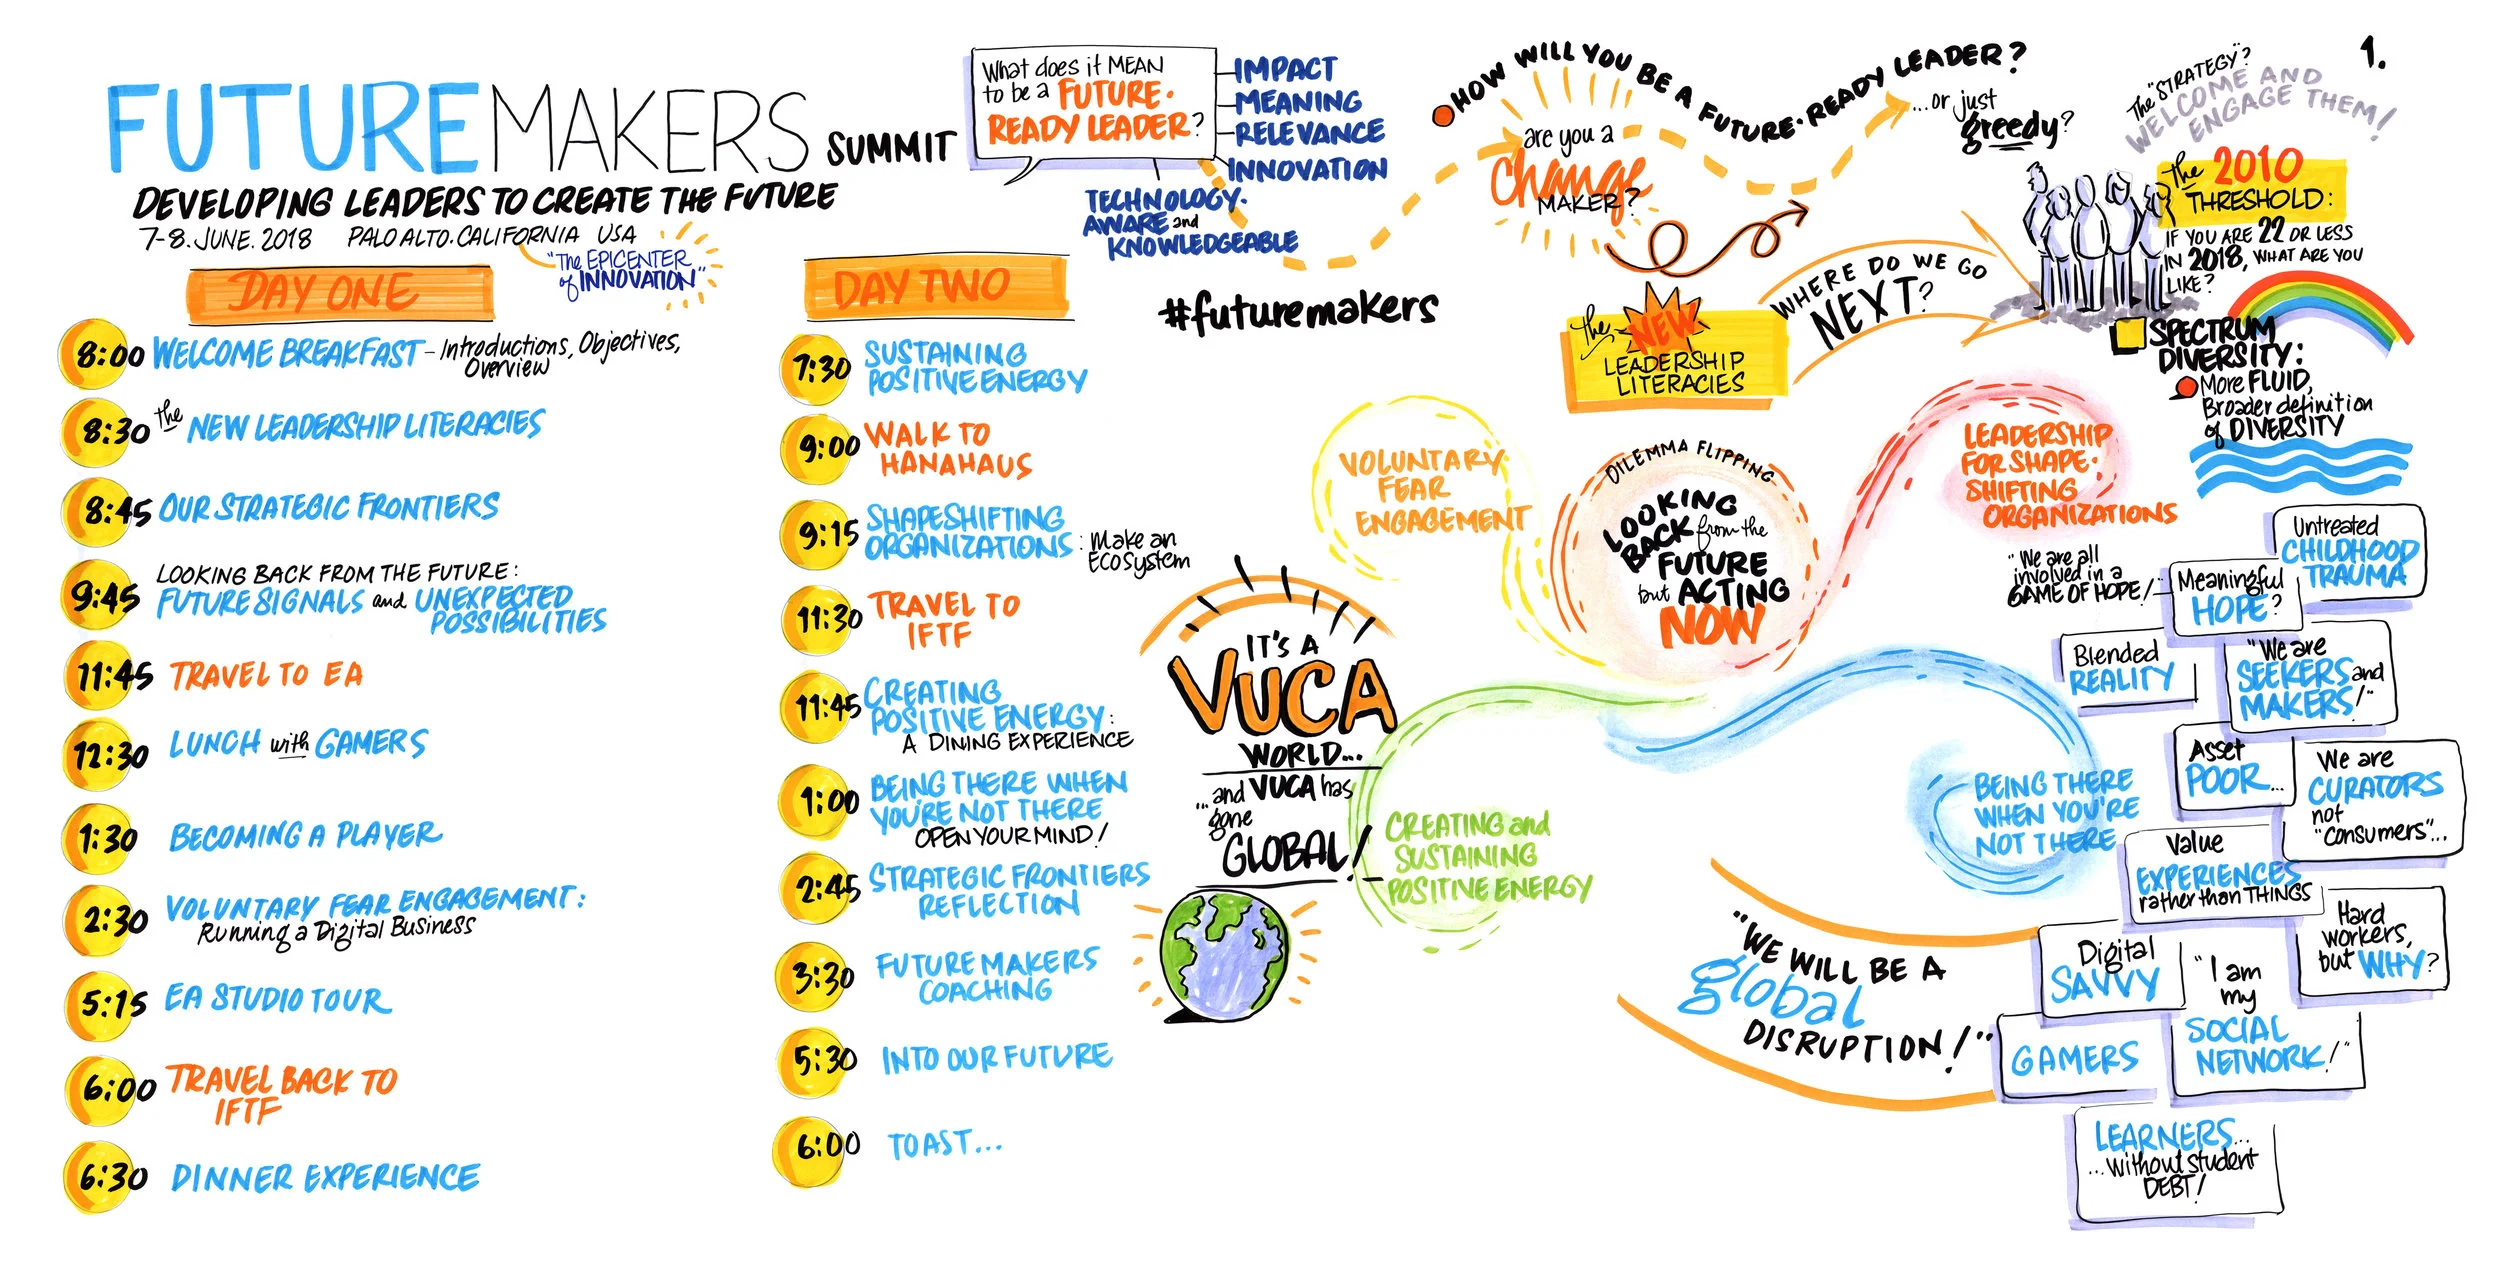 FUTUREMAKERS SUMMIT
DEVELOPING LEADERS TO CREATE THE FUTURE
7-8. JUNE. 2018 PALO ALTO. CALIFORNIA USA
"The EPICENTER
of INNOVATION"
DAY ONE
8:00 WELCOME BREAKFAST - Introductions, Objectives,
Overview
8:30 the NEW LEADERSHIP LITERACIES
8:45 OUR STRATEGIC FRONTIERS
9:45 LOOKING BACK FROM THE FUTURE:
FUTURE SIGNALS and UNEXPECTED
POSSIBILITIES
11:45 TRAVEL TO EA
12:30 LUNCH with GAMERS
1:30 BECOMING A PLAYER
2:30 VOLUNTARY FEAR ENGAGEMENT:
Running a Digital Business
5:15 EA STUDIO TOUR
6:00 TRAVEL BACK TO
IFTF
6:30 DINNER EXPERIENCE
DAY TWO
7:30 SUSTAINING
POSITIVE ENERGY
9:00 WALK TO
HANAHAUS
9:15 SHAPESHIFTING
ORGANIZATIONS: Make an
Ecosystem
11:30 TRAVEL TO
IFTF
11:45 CREATING
POSITIVE ENERGY:
A DINING EXPERIENCE
1:00 BEING THERE WHEN
YOU'RE NOT THERE
OPEN YOUR MIND!
2:45 STRATEGIC FRONTIERS
REFLECTION
3:30 FUTURE MAKERS
COACHING
5:30 INTO OUR FUTURE
6:00 TOAST...
What does it MEAN
to be a FUTURE.
READY LEADER?
IMPACT
MEANING
RELEVANCE
INNOVATION
TECHNOLOGY.
AWARE and
KNOWLEDGEABLE
#futuremakers
HOW WILL YOU BE A FUTURE.READY LEADER?
are you a
change
MAKER?
...or just
greedy?
The "STRATEGY"?
WELCOME AND
ENGAGE THEM!
1.
the 2010
THRESHOLD:
IF YOU ARE 22 OR LESS
IN 2018, WHAT ARE YOU
LIKE?
the NEW
LEADERSHIP
LITERACIES
WHERE DO WE GO
NEXT?
SPECTRUM
DIVERSITY:
More FLUID,
Broader definition
of DIVERSITY
VOLUNTARY
FEAR
ENGAGEMENT
DILEMMA FLIPPING
LOOKING
BACK from the
FUTURE
but ACTING
NOW
LEADERSHIP
FOR SHAPE.
SHIFTING
ORGANIZATIONS
IT'S A
VUCA
WORLD...
...and VUCA has
gone
GLOBAL!
CREATING and
SUSTAINING
POSITIVE ENERGY
BEING THERE
WHEN YOU'RE
NOT THERE
"WE WILL BE A
global
DISRUPTION!"
"We are all
involved in a
GAME OF HOPE!"
Untreated
CHILDHOOD
TRAUMA
Meaningful
HOPE?
Blended
REALITY
"We are
SEEKERS and
MAKERS!"
Asset
POOR...
We are
CURATORS
not
"Consumers"...
Value
EXPERIENCES
rather than THINGS
Hard
workers,
but WHY?
Digital
SAVVY
"I am
my
SOCIAL
NETWORK!"
GAMERS
LEARNERS...
...without student
DEBT!